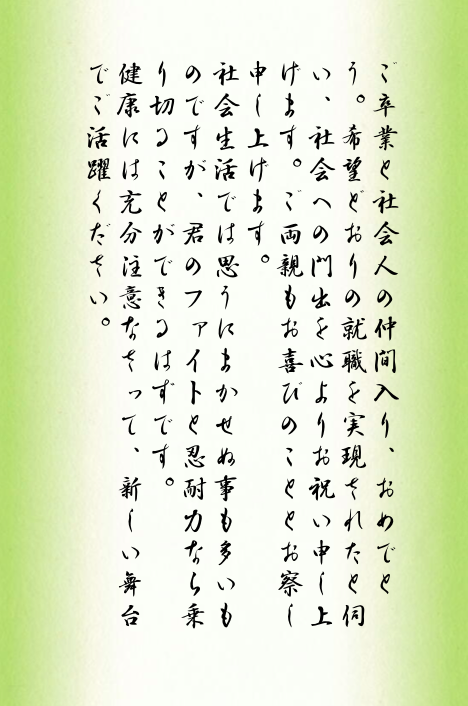 ご卒業と社会人の仲間入り、おめでと
う。希望どおりの就職を実現されたと伺
い、社会への門出を心よりお祝い申し上
げます。ご両親もお喜びのこととお察し
申し上げます。
社会生活では思うにまかせぬ事も多いも
のですが、君のファイトと忍耐力なら乗
り切ることができるはずです。
健康には充分注意なさって、新しい舞台
でご活躍ください。